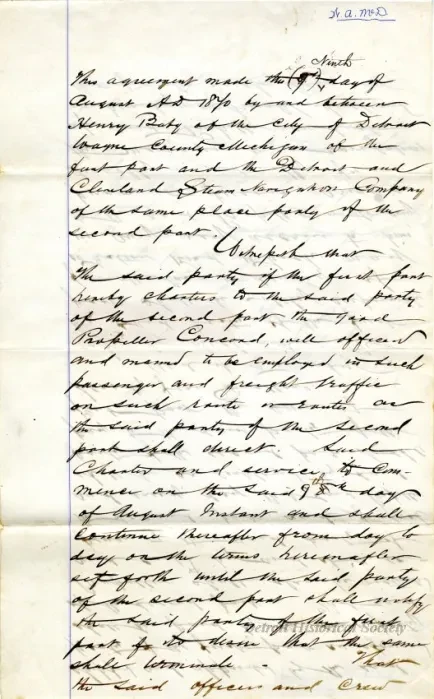 H. A. McD.
Ninth
This agreement made the (9th) day of
August AD 1870 by and between
Henry Baby of the City of Detroit
Wayne County Michigan of the
first part and the Detroit and
Cleveland Steam Navigation Company
of the same place party of the
second part.
Witnesseth that
The said party of the first part
hereby charters to the said party
of the second part the good
Propeller Concord, well officered
and maned to be employed in such
passenger and freight traffic
on such route or routes as
the said party of the second
part shall direct. Said
Charter and service to com-
mence on the said 9th day
of August Instant and shall
continue thereafter from day to
day on the terms hereinafter
set forth until the said party
of the second part shall notify
the said party of the first
part of its desire that the same
shall terminate. That
the said officers and crew
Detroit Historical Society